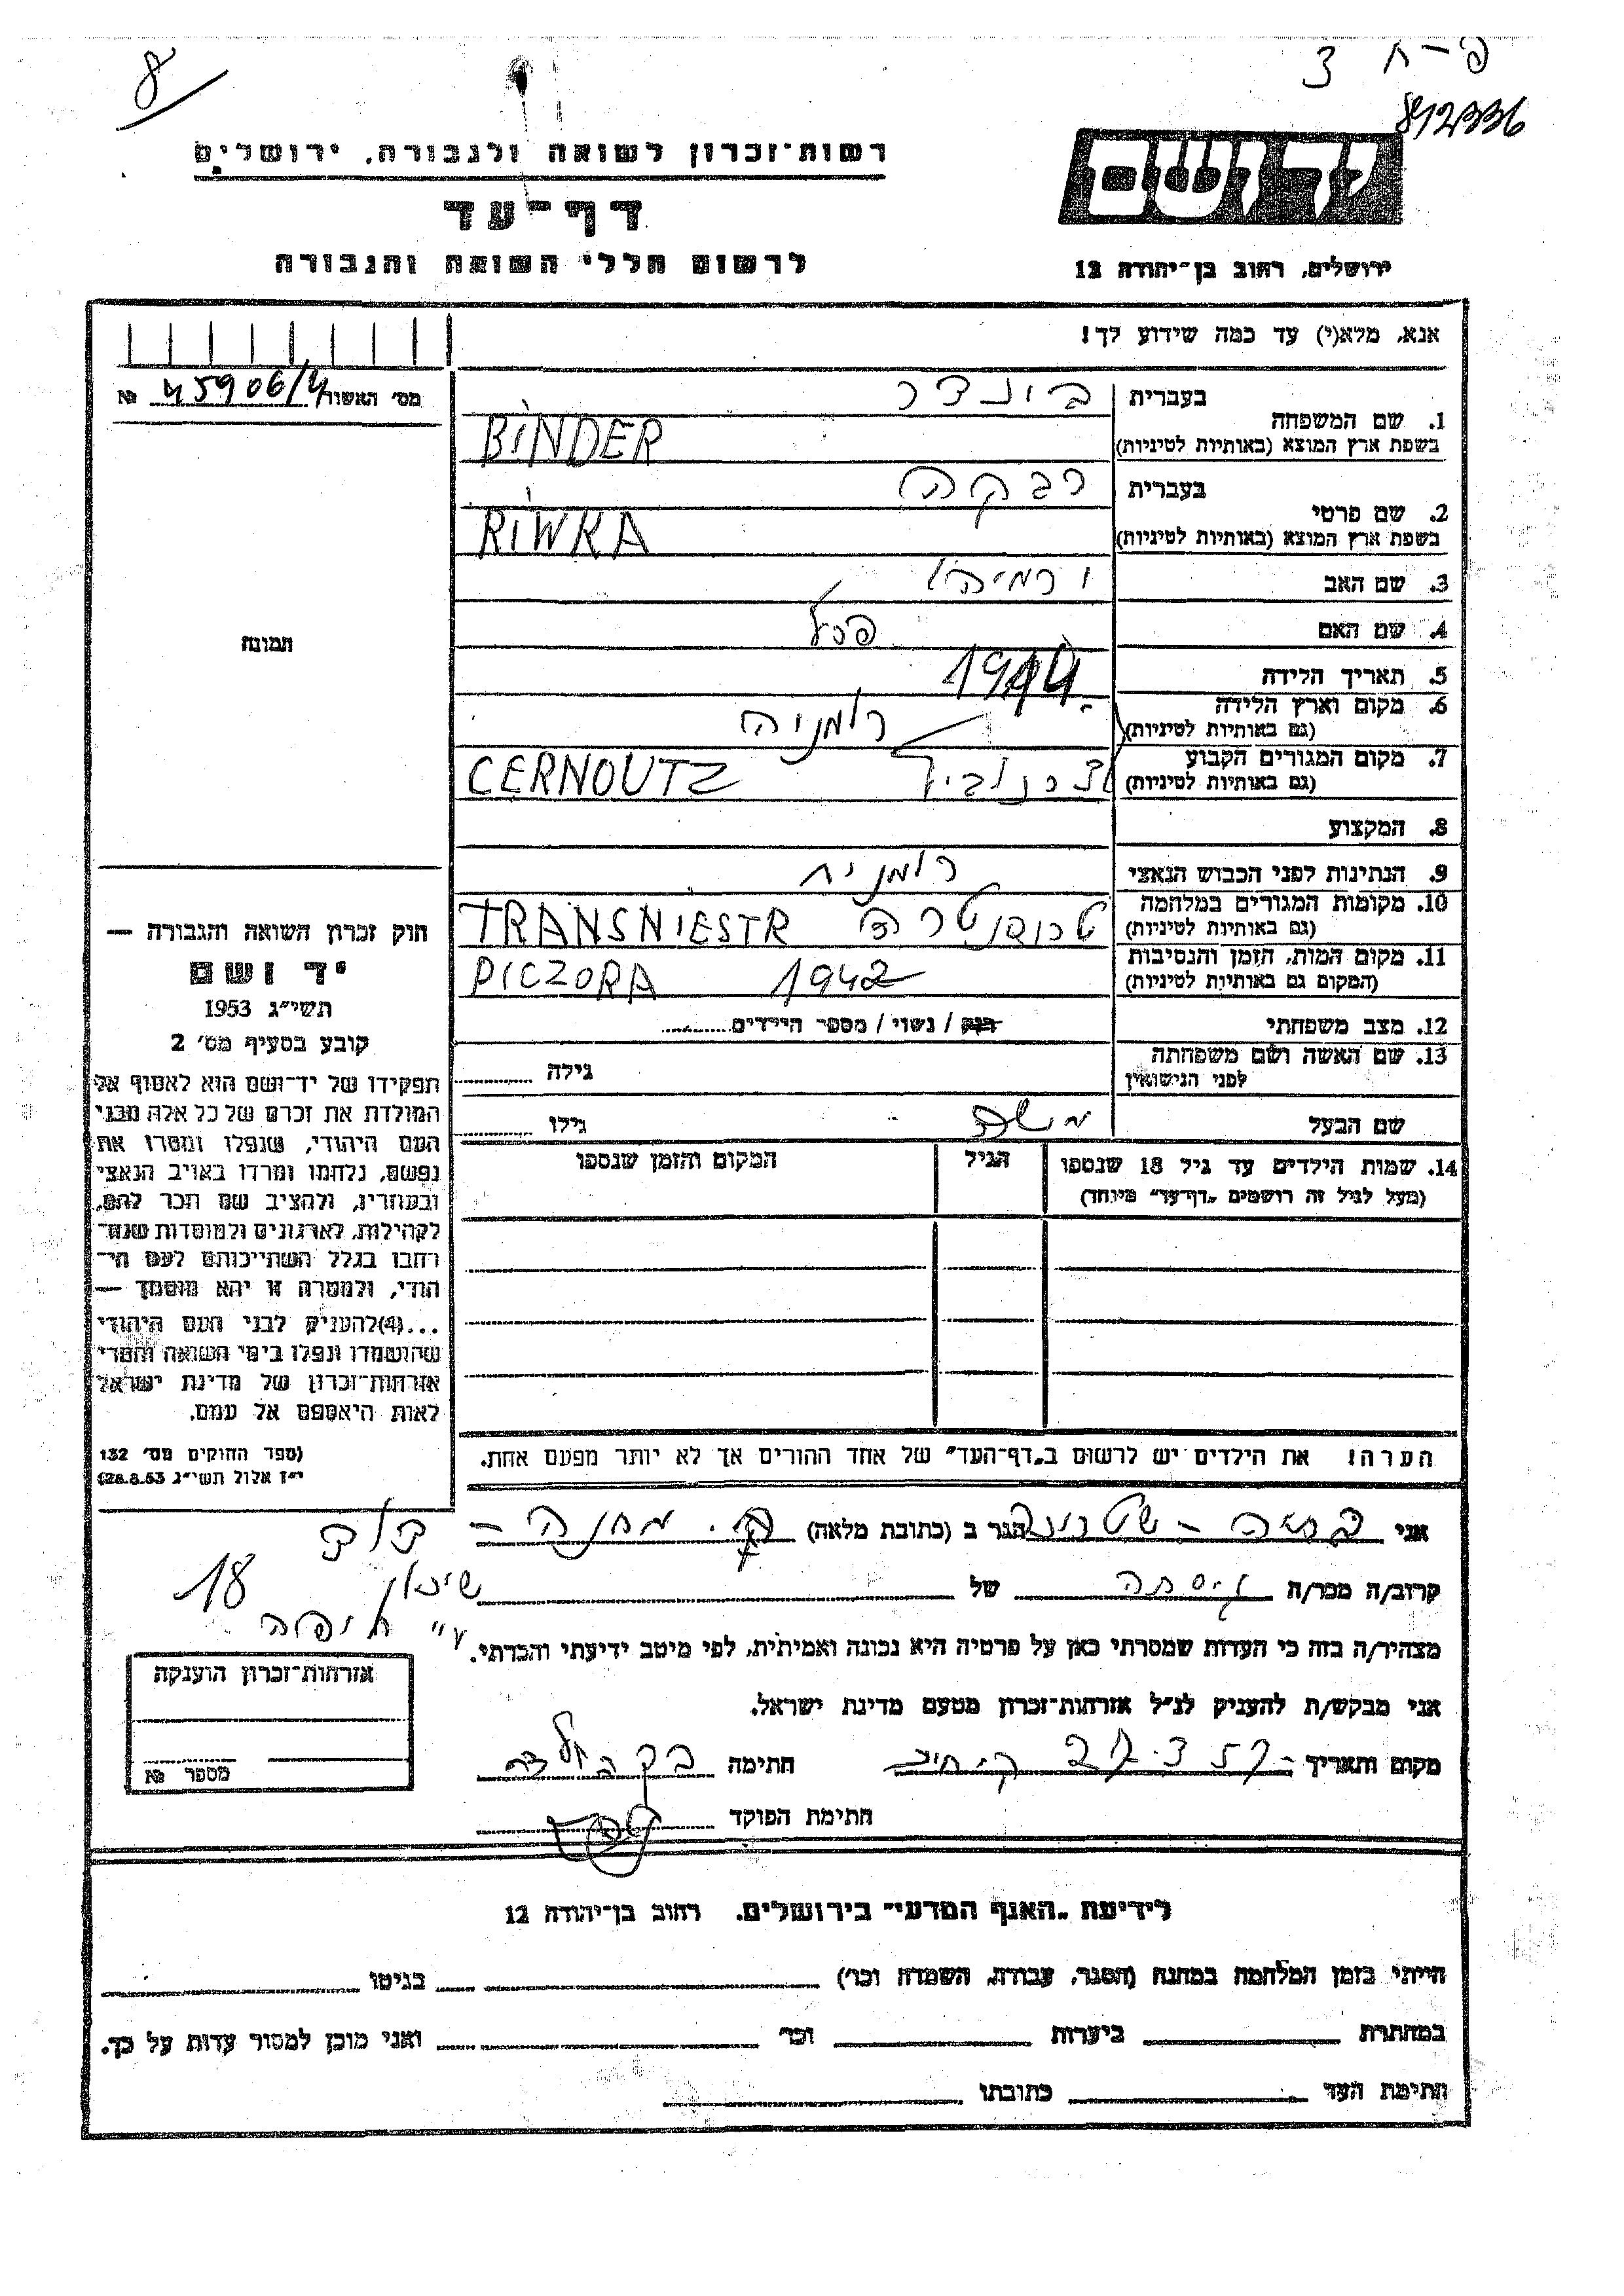 8
פ-ח 3
812336
רשות-זכרון לשואה ולגבורה, ירושלים
יד ושם
דף-עד
לרשום חללי השואה והגבורה
ירושלים, רחוב בן-יהודה 12
אנא, מלא(י) עד כמה שידוע לך!
מס' האשור 45906/4 №
1. שם המשפחה
בעברית בינדר
בשפת ארץ המוצא (באותיות לטיניות) BINDER
2. שם פרטי
בעברית רבקה
בשפת ארץ המוצא (באותיות לטיניות) RIWKA
3. שם האב ירמיהו
4. שם האם
5. תאריך הלידה
6. מקום וארץ הלידה רומניה
(גם באותיות לטיניות)
7. מקום המגורים הקבוע
(גם באותיות לטיניות) CERNOUTZ
8. המקצוע
9. הנתינות לפני הכבוש הנאצי רומנית
10. מקומות המגורים במלחמה
(גם באותיות לטיניות) TRANSNIESTR
11. מקום המות, הזמן והנסיבות
(המקום גם באותיות לטיניות) PICZORA 1942
12. מצב משפחתי רוק / נשוי / מספר הילדים
13. שם האשה ושם משפחתה
לפני הנישואין גילה
שם הבעל משה גילו
14. שמות הילדים עד גיל 18 שנספו הגיל המקום והזמן שנספו
(מעל לגיל זה רושמים "דף-עד" מיוחד)
תמונה
חוק זכרון השואה והגבורה —
יד ושם
תשי"ג 1953
קובע בסעיף מס' 2
תפקידו של יד-ושם הוא לאסוף אל
המולדת את זכרם של כל אלה מבני
העם היהודי, שנפלו ומסרו את
נפשם, נלחמו ומרדו באויב הנאצי
ובעוזריו, ולהציב שם וזכר להם,
לקהילות, לארגונים ולמוסדות שנח-
רבו בגלל השתייכותם לעם הי-
הודי, ולמטרה זו יהא מוסמך —
...(4)להעניק לבני העם היהודי
שהושמדו ונפלו בימי השואה והמרי
אזרחות-זכרון של מדינת ישראל
לאות היאספם אל עמם.
(ספר החוקים מס' 132
י"ז אלול תשי"ג 28.8.53)
הערה! את הילדים יש לרשום ב"דף-העד" של אחד ההורים אך לא יותר מפעם אחת.
אני הגר ב (כתובת מלאה)
שיכון 18
ע"י חיפה
קרוב/ה מכר/ה גיסתה של
מצהיר/ה בזה כי העדות שמסרתי כאן על פרטיה היא נכונה ואמיתית, לפי מיטב ידיעתי והכרתי.
אני מבקש/ת להעניק לנ"ל אזרחות-זכרון מטעם מדינת ישראל.
מקום ותאריך חתימה
חתימת הפוקד
אזרחות-זכרון הוענקה
מספר №
לידיעת "האגף המדעי" בירושלים, רחוב בן-יהודה 12
הייתי בזמן המלחמה במחנה (הסגר, עבודה, השמדה וכו') בגיטו
במחתרת ביערות וכו' ואני מוכן למסור עדות על כך.
חתימת העד כתובתו